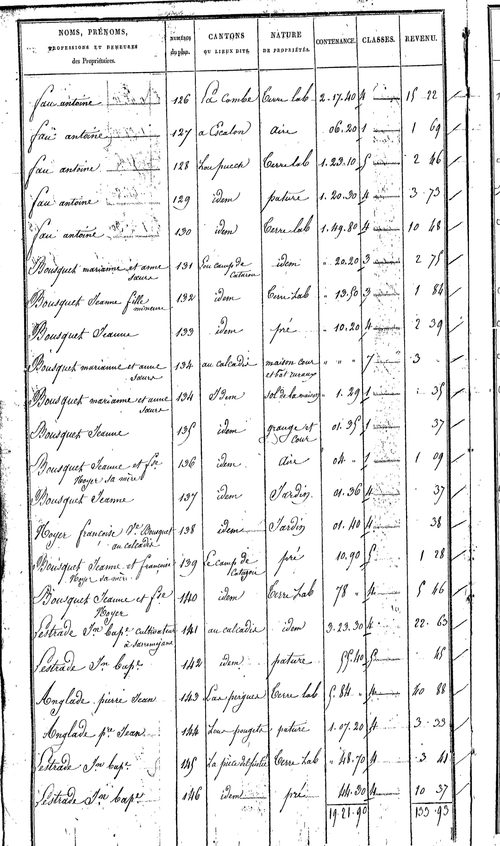 NOMS, PRÉNOMS, PROFESSIONS ET DEMEURES des Propriétaires. NUMÉROS du plan. CANTONS OU LIEUX DITS. NATURE DE PROPRIÉTÉS. CONTENANCE. CLASSES. REVENU.
fau antoine 126 La Combe Terre lab 2.17.40 4 15 22
fau antoine 127 a Escalon aire 06.20 1 1 69
fau antoine 128 Lou puech Terre lab 1.23.10 5 2 46
fau antoine 129 idem pature 1.20.30 4 3 73
fau antoine 130 idem Terre lab 1.49.80 4 10 48
Bousquet marianne et anne sœurs 131 Lou camp de idem " 20.20 3 2 75
Bousquet Jeanne fille mineure 132 idem Terre Lab " 13.50 3 1 84
Bousquet Jeanne 133 idem pré " 10.20 4 2 39
Bousquet marianne et anne sœurs 134 au calcadis maison cour et bat ruraux " " " 7 3 "
Bousquet marianne et anne sœurs 134 Idem sol de la maison " 1.29 1 " 35
Bousquet Jeanne 135 idem grange et cour 01.35 1 37
Bousquet Jeanne et fse Noyer sa mère 136 idem aire 04 " 1 1 09
Bousquet Jeanne 137 idem Jardin 01.36 4 37
Noyer francoise Ve Bousquet au calcadis 138 idem Jardin 01.40 4 38
Bousquet Jeanne et francoise Noyer sa mère 139 Le camp de pré 10.90 5 1 28
Bousquet Jeanne et fse Noyer 140 idem Terre Lab 78 " 4 5 46
Lestrade Jn bapte cultivateur à 141 au calcadis idem 3.23.30 4 22 63
Lestrade Jn bapte 142 idem pature 55.40 5 45
Anglade pierre Jean 143 Las Terre lab 5.84 " 4 40 88
Anglade pre Jean 144 Lous pougets pature 1.07.20 4 3 33
Lestrade Jn bapte 145 La Terre Lab " 48.70 4 3 41
Lestrade Jn bapte 146 idem pré 44.30 4 10 37
19.21.90 133 93